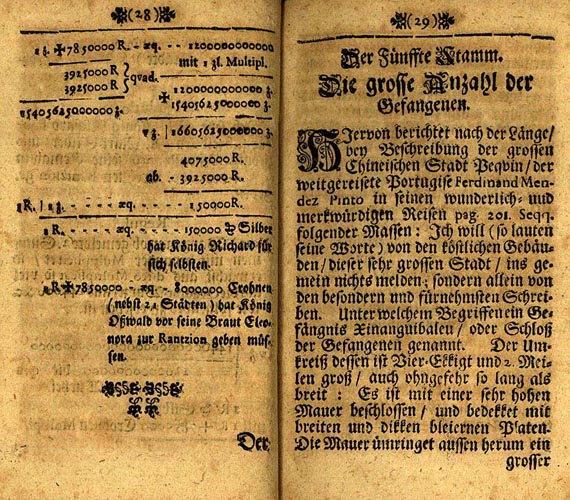 (28)
1 z. + 7850000 R. - æq. - - 12000000000000
mit 1 zl. Multipl.
3925000 R.
3925000 R. } Quad.
12000000000000 z.
+ 15405625000000 z.
15405625000000 z.
√ z. | 16605625000000 z.
4075000 R.
ab. - 3925000 R.
1 R. | 1 z. - - - - æq. - - - - 150000 R.
1 R. - - - - æq. - - - - 150000 ℔ Silber
hat König Richard für
sich selbsten.
1 R + 7850000 - - æq. - 8000000 Crohnen
(nebst 21 Städten) hat König
Oßwald vor seine Braut Eleo-
nora zur Rantzion geben müs-
sen.
Der
(29)
Der Fünffte Stamm.
Die grosse Anzahl der
Gefangenen.
HJervon berichtet nach der Länge/
bey Beschreibung der grossen
Chineischen Stadt Peqvin/der
weitgereisete Portugise Ferdinand Men-
dez Pinto in seinen wunderlich- und
merkwürdigen Reisen pag. 201. Seqq.
folgender Massen: Jch will (so lauten
seine Worte) von den köstlichen Gebäu-
den/dieser sehr grossen Stadt/ins ge-
mein nichts melden; sondern allein von
den besondern und fürnehmsten Schrei-
ben. Unter welchem Begriffen ein Ge-
fängnis Xinanguibalen/oder Schloß
der Gefangenen genannt. Der Um-
kreiß dessen ist Vier-Ekkigt und 2. Mei-
len groß/auch ohngefehr so lang als
breit: Es ist mit einer sehr hohen
Mauer beschlossen/und bedekket mit
breiten und dikken bleiernen Platen.
Die Mauer ümringet aussen herum ein
grosser